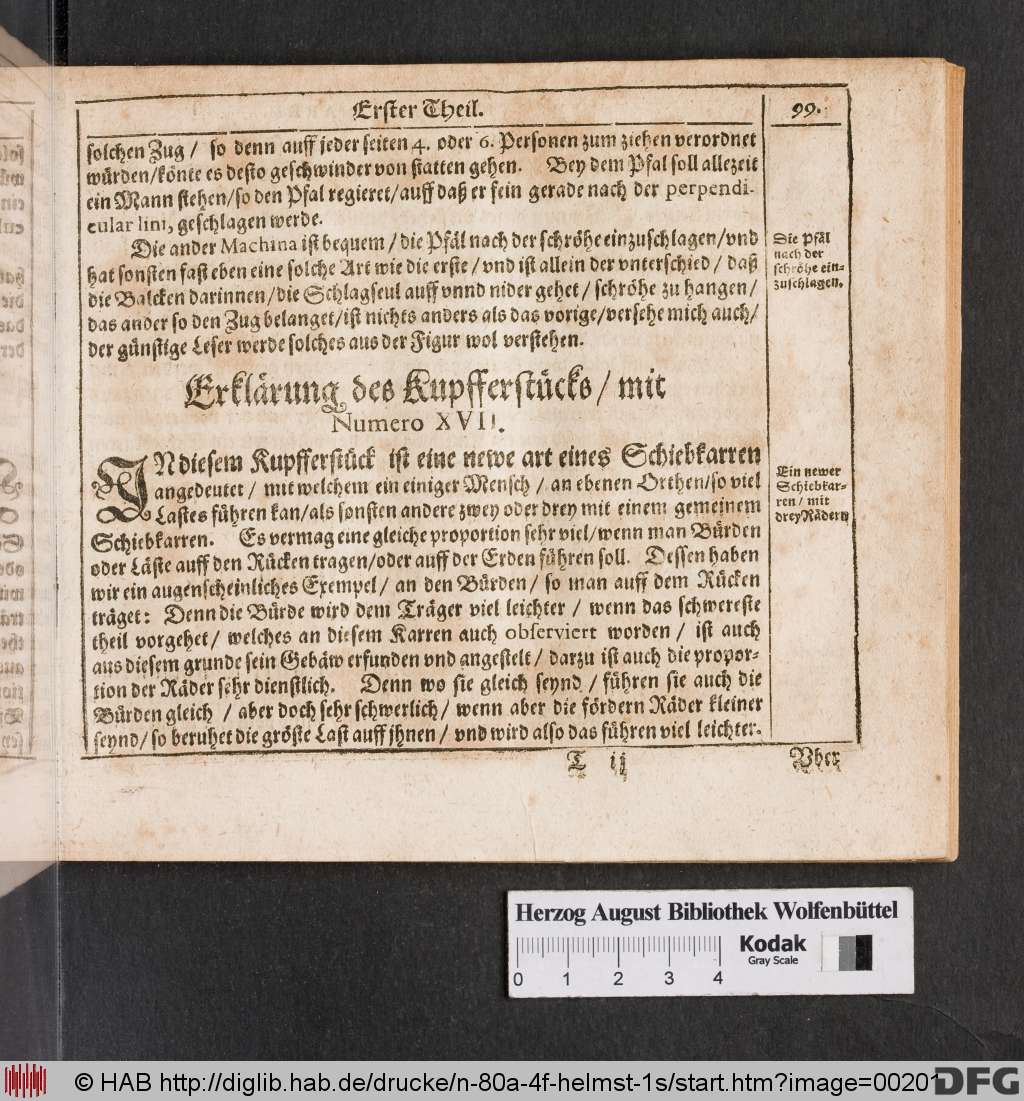 Erster Theil.
99.
solchen Zug / so denn auff jeder seiten 4. oder 6. Personen zum ziehen verordnet
würden/könte es desto geschwinder von statten gehen. Bey dem Pfal soll allezeit
ein Mann stehen/so den Pfal regieret/auff daß er fein gerade nach der perpendi-
cular lini, geschlagen werde.
Die ander Machina ist bequem / die Pfäl nach der schröhe einzuschlagen/vnd
hat sonsten fast eben eine solche Art wie die erste / vnd ist allein der vnterschied / daß
die Balcken darinnen/die Schlagseul auff vnnd nider gehet / schröhe zu hangen/
das ander so den Zug belanget/ist nichts anders als das vorige/versehe mich auch/
der günstige Leser werde solches aus der Figur wol verstehen.
Die Pfäl
nach der
schröhe ein-
zuschlagen.
Erklärung des Kupfferstücks / mit
Numero XVII.
IN diesem Kupfferstück ist eine newe art eines Schiebkarren
angedeutet / mit welchem ein einiger Mensch / an ebenen Orthen/so viel
Lastes führen kan/als sonsten andere zwey oder drey mit einem gemeinem
Schiebkarren. Es vermag eine gleiche proportion sehr viel/wenn man Bürden
oder Läste auff den Rücken tragen/oder auff der Erden führen soll. Dessen haben
wir ein augenscheinliches Exempel / an den Bürden / so man auff dem Rücken
träget: Denn die Bürde wird dem Träger viel leichter / wenn das schwereste
theil vorgehet / welches an diesem Karren auch observiert worden / ist auch
aus diesem grunde sein Gebäw erfunden vnd angestelt / darzu ist auch die propor-
tion der Räder sehr dienstlich. Denn wo sie gleich seynd / führen sie auch die
Bürden gleich / aber doch sehr schwerlich / wenn aber die fördern Räder kleiner
seynd/so beruhet die gröste Last auff jhnen / vnd wird also das führen viel leichter.
Ein newer
Schiebkar-
ren / mit
drey Rädern
T ij
Vber
Herzog August Bibliothek Wolfenbüttel
Kodak
Gray Scale
0 1 2 3 4
© HAB http://diglib.hab.de/drucke/n-80a-4f-helmst-1s/start.htm?image=00201
DFG